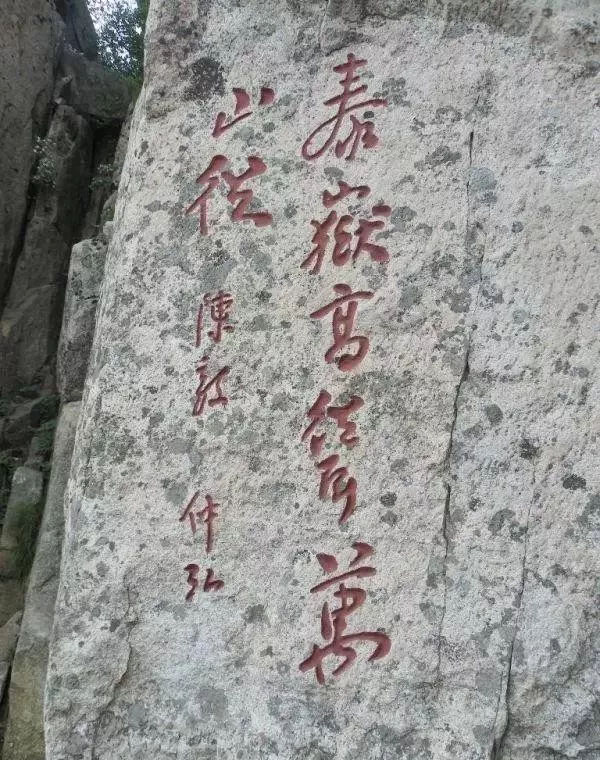 泰嶽高聳萬
山從 陳毅 仲弘